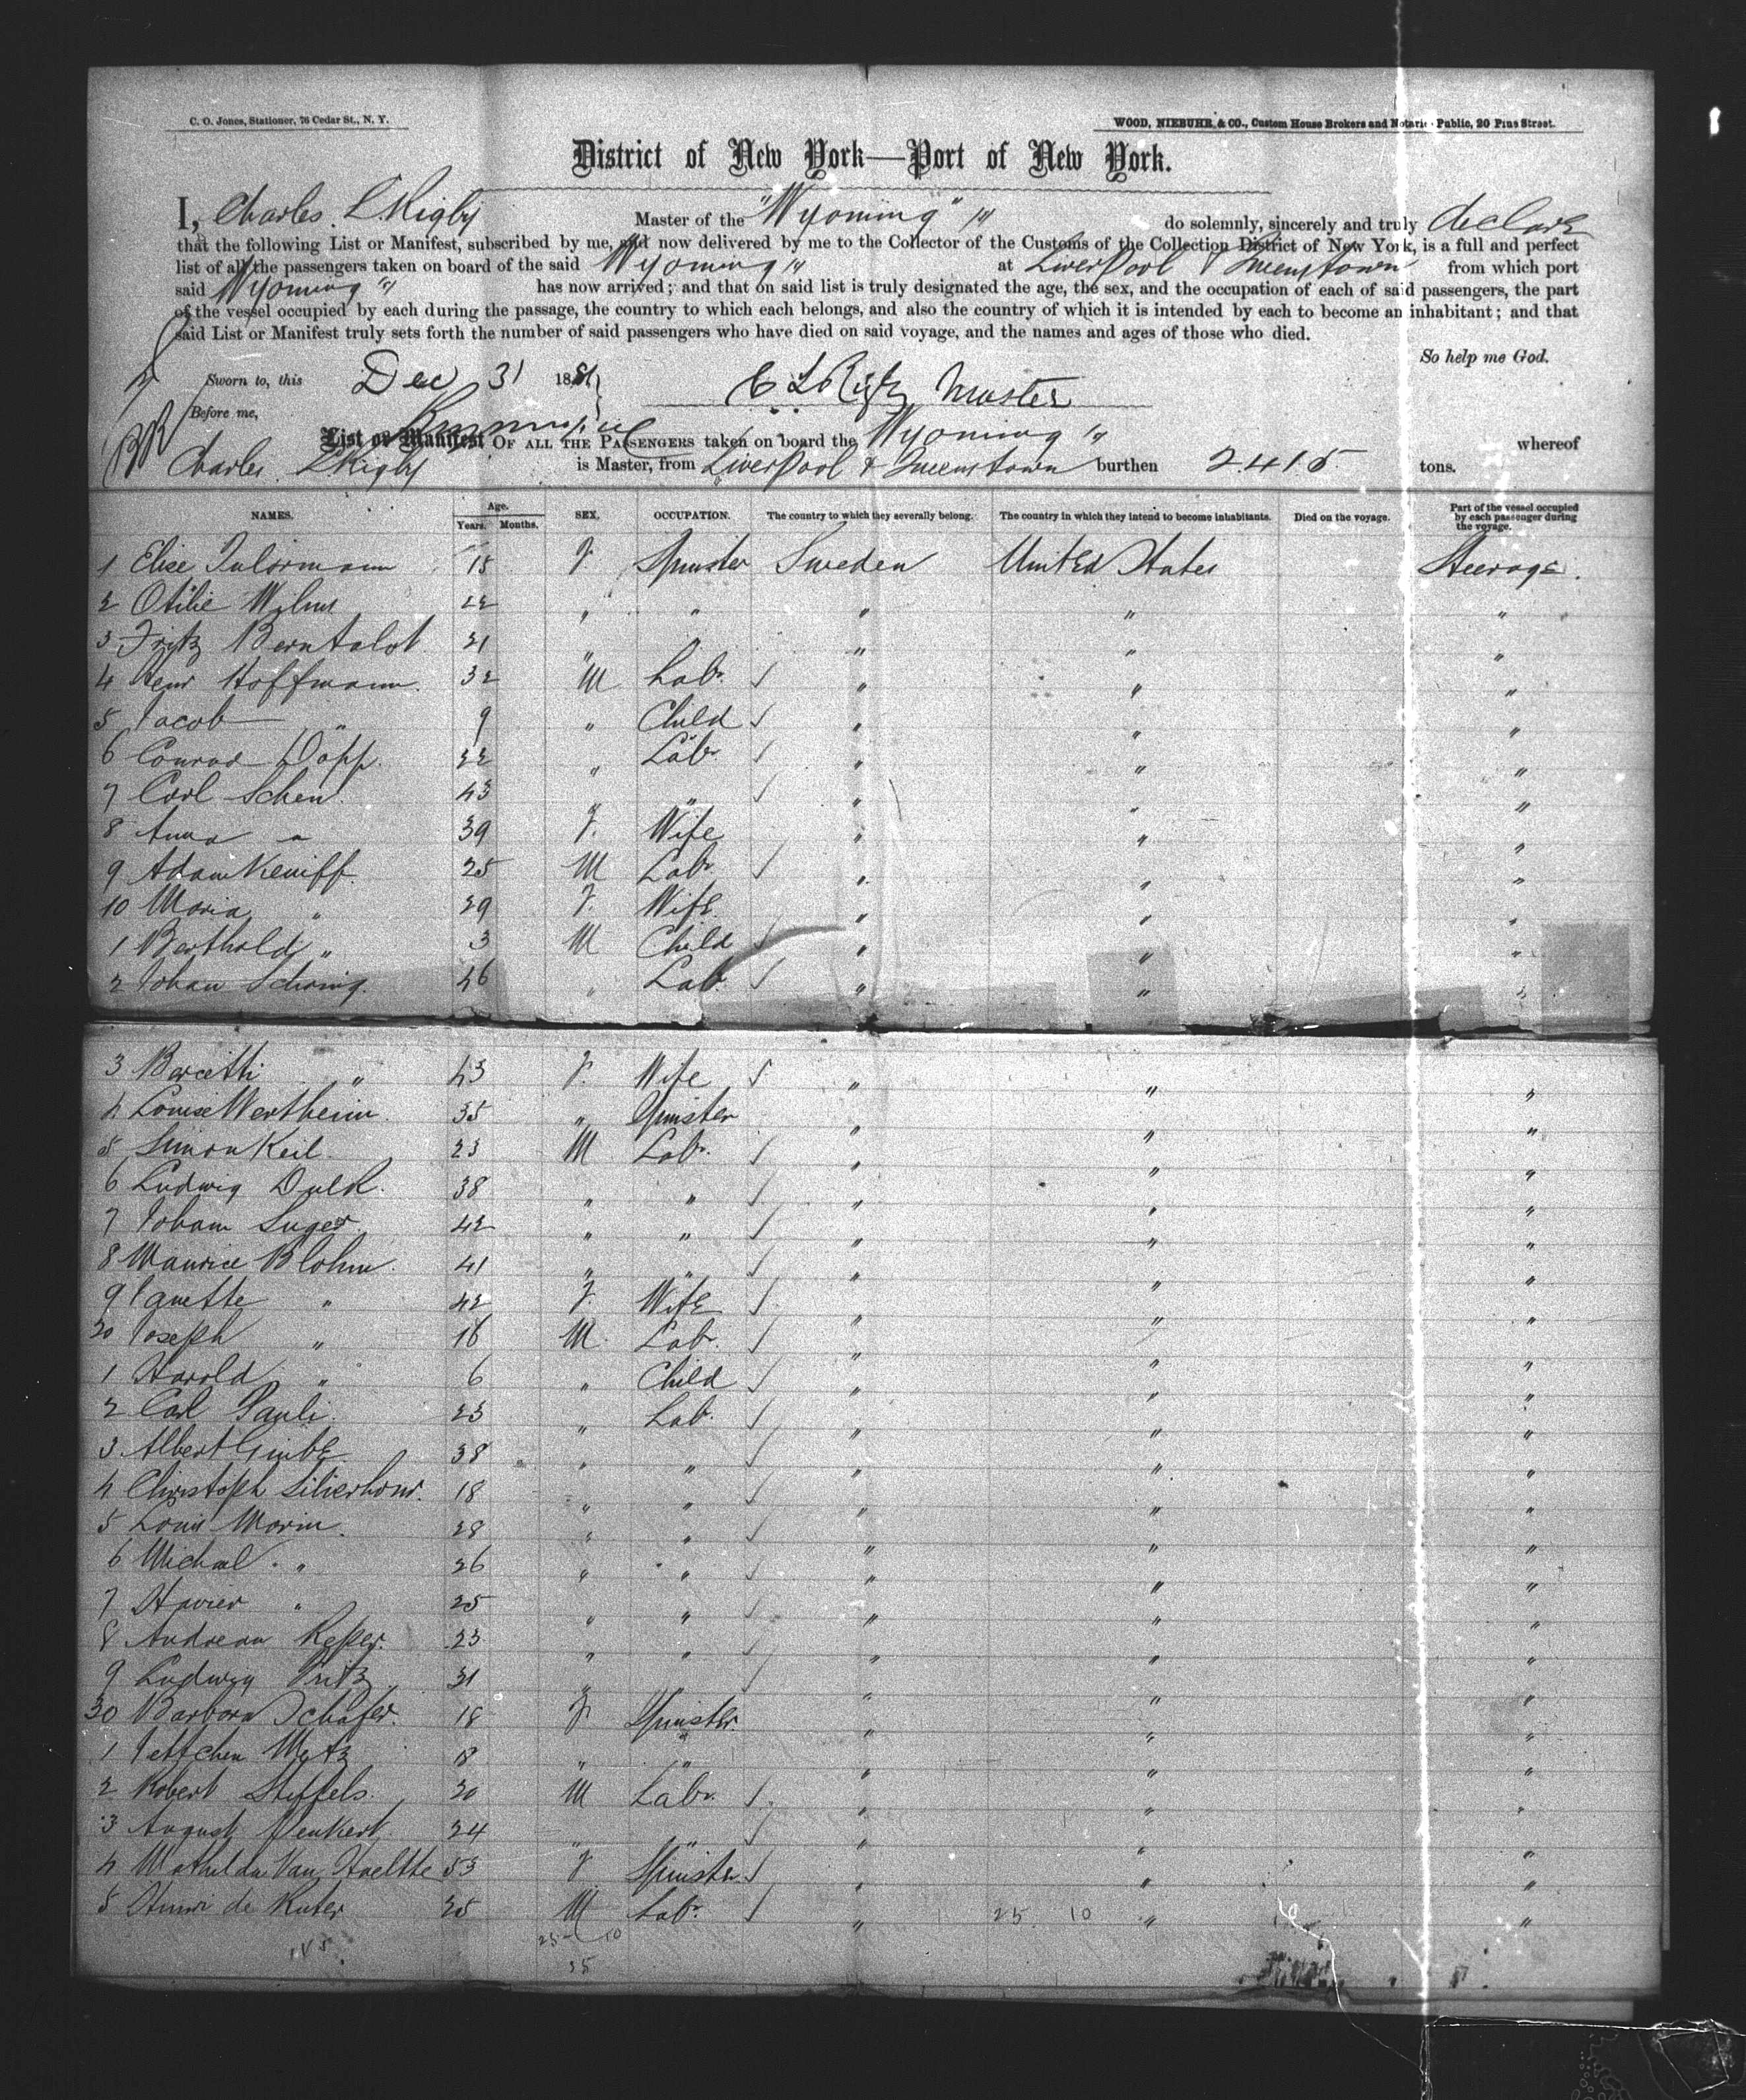 C. O. Jones, Stationer, 76 Cedar St., N. Y.
WOOD, NIEBUHR & CO., Custom House Brokers and Notaries Public, 20 Pine Street.
District of New York—Port of New York.
I, Charles L Rigby Master of the "Wyoming" do solemnly, sincerely and truly declare
that the following List or Manifest, subscribed by me, and now delivered by me to the Collector of the Customs of the Collection District of New York, is a full and perfect
list of all the passengers taken on board of the said Wyoming at Liverpool & Queenstown from which port
said Wyoming has now arrived; and that on said list is truly designated the age, the sex, and the occupation of each of said passengers, the part
of the vessel occupied by each during the passage, the country to which each belongs, and also the country of which it is intended by each to become an inhabitant; and that
said List or Manifest truly sets forth the number of said passengers who have died on said voyage, and the names and ages of those who died.
So help me God.
Sworn to, this Dec 31 1881
C L Rigby Master
Before me,
List or Manifest OF ALL THE PASSENGERS taken on board the Wyoming whereof
Charles L Rigby is Master, from Liverpool & Queenstown burthen 2415 tons.
NAMES. Age. Years. Months. SEX. OCCUPATION. The country to which they severally belong. The country in which they intend to become inhabitants. Died on the voyage. Part of the vessel occupied by each passenger during the voyage.
1 Elise 15 F Spinster Sweden United States Steerage.
2 Otilie Wilms 22 " " " " "
3 Fritz 21 " " " "
4 Henr Hoffmann. 32 M Labr. " " "
5 Jacob " 9 " Child " " "
6 Conrad Dopp. 22 " Labr " " "
7 Carl Schen. 43 " " " " "
8 Anna " 39 F. Wife " " "
9 Adam Keniff. 25 M Labr " " "
10 Maria " 29 F. Wife " " "
1 Berthold " 3 M Child " " "
2 Johan Schonig. 46 " Labr " " "
3 " 43 F. Wife " " "
4 Louise Wertheim. 35 " Spinster " " "
5 Simon Keil. 23 M Labr. " " "
6 Ludwig 38 " " " " "
7 Johann Luger 42 " " " " "
8 Maurice Blohm. 41 " " " " "
9 Janette " 42 F. Wife " " "
20 Joseph " 16 M. Labr. " " "
1 Harold " 6 " Child " " "
2 Carl Pauli. 23 " Labr. " " "
3 Albert 38 " " " " "
4 Christoph 18 " " " " "
5 Louis Morin. 28 " " " " "
6 Michael " 26 " " " " "
7 Havier " 25 " " " " "
8 Andreau Kesser. 23 " " " " "
9 Ludwig Fritz 31 " " " "
30 Barbara Schafer. 18 F Spinster. " " "
1 Jettchen Metz 18 " " " " "
2 Robert Steffels. 20 M Labr. " " "
3 August Penkert 24 " " " " "
4 Mathilda Van Haeltte 53 F Spinster " " "
5 Henri de Kuter 25 M Labr. " 25 10 " "
25 10